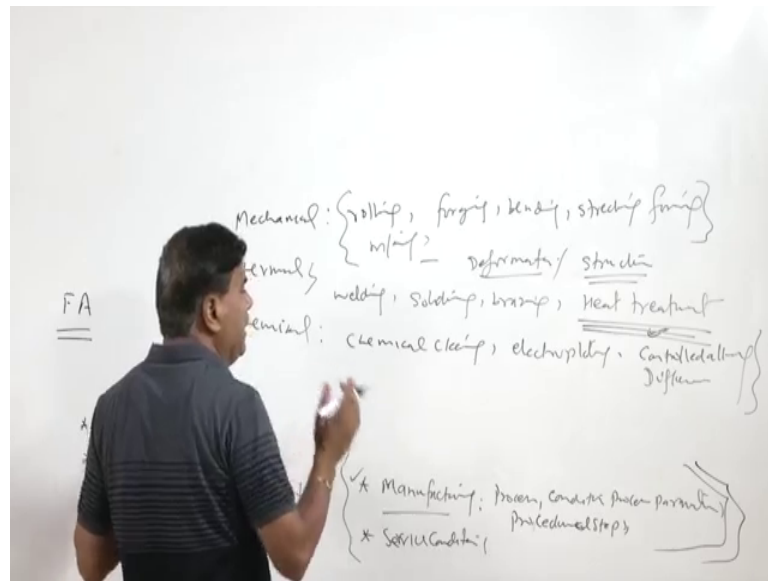 Mechanical: { rolling, forging, bending, streching forming }
m/ing,
Deformation / Structure
FA
welding, Solding, brazing, Heat treatment
Chemical cleaing, electroplating, Controlled alloying
Diffusion
* Manufacturing: Process, Condition, Process parameters,
Procedural Steps
* Service Conditions